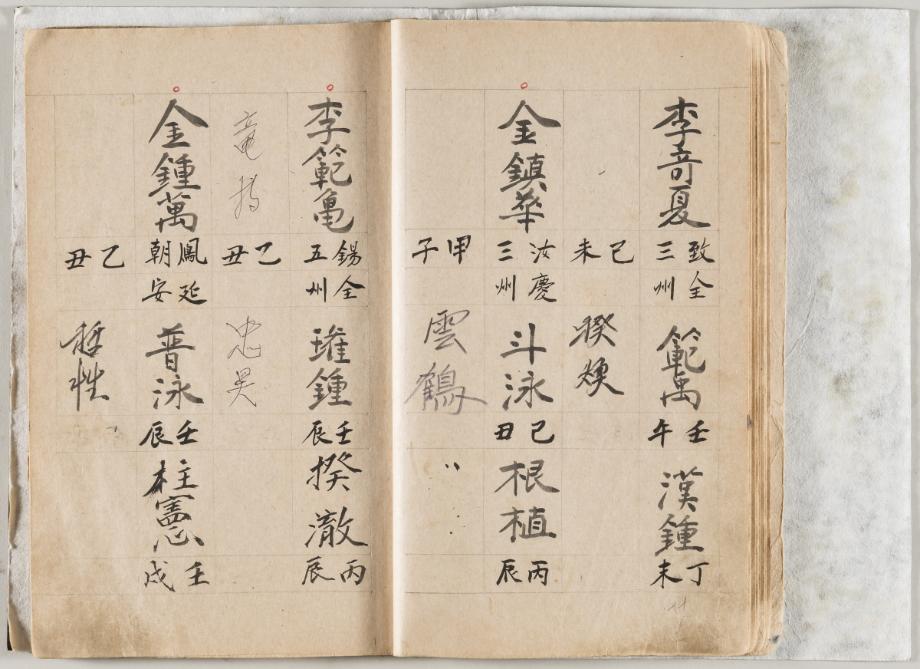 李奇夏
致三
全州
範禹
壬午
漢鍾
丁未
己未
揆煥
金鎭華
汝三
慶州
斗泳
己丑
根植
丙辰
甲子
雲鶴
李範龜
錫五
全州
璀鍾
壬辰
揆澈
丙辰
乙丑
忠昊
金鍾萬
鳳朝
延安
普泳
壬辰
柱憲
壬戌
乙丑